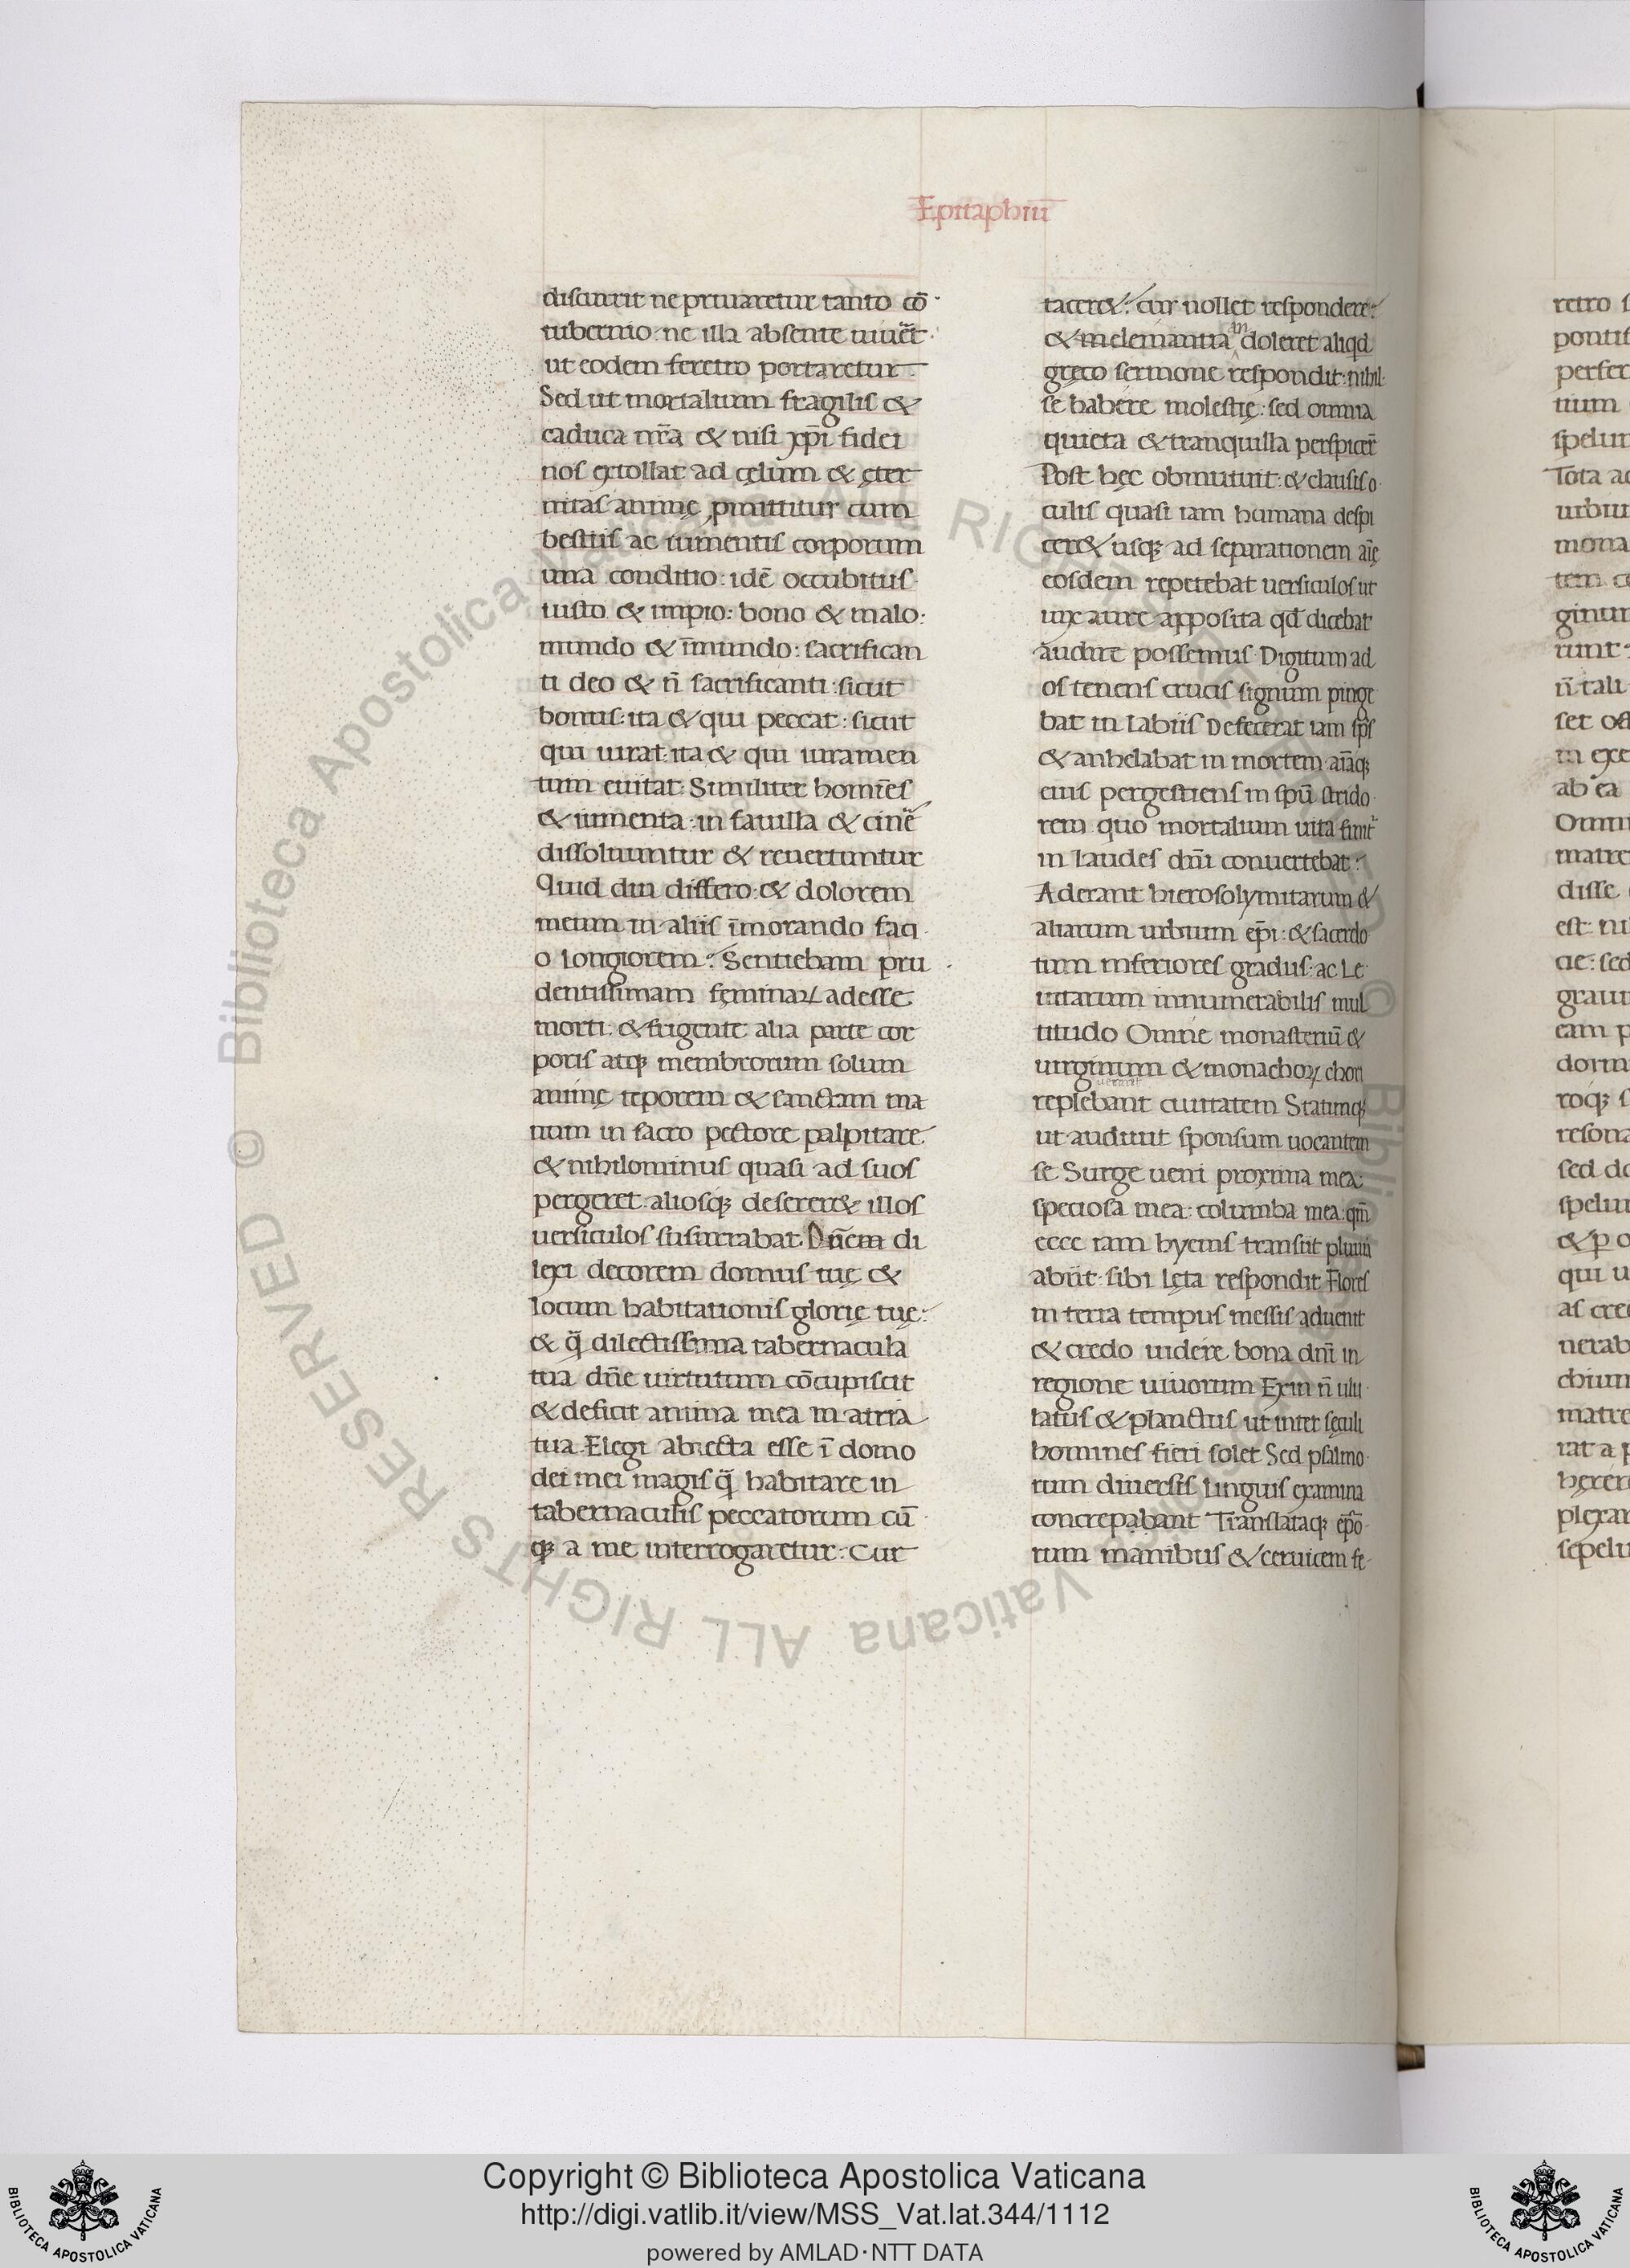 Epitaphiū
discurrit ne priuaretur tanto cō
tubernio: ne illa absente uiuēt
ut eodem feretro portaretur
Sed ut mortalium fragilis &
caduca nr̄a & nisi xp̄i fidei
nos extollat ad cęlum & ęter
nitas animę ꝓmittitur cum
bestiis ac iumentis corporum
una conditio: idē occubitus
iusto & impio: bono & malo:
mundo & īmundo: sacrifican
ti deo & n̄ sacrificanti: sicut
bonus: ita & qui peccat: sicut
qui iurat: ita & qui iuramen
tum euitat: Similiter homīes
& iumenta: in fauilla & cinē
dissoluuntur & reuertuntur
Quid diu differo: & dolorem
meum in aliis īmorando faci
o longiorem? Sentiebam pru
dentissimam feminaꝝ adesse
morti: & frigente alia parte cor
poris atqꝫ membrorum solum
animę teporem & sanctam ma
num in sacro pectore palpitare
& nihilominus quasi ad suos
pergeret: aliosqꝫ deserer& illos
uersiculos susurrabat. Dn̄em di
lexi decorem domus tuę &
locum habitationis glorię tuę:
& q̄ dilectissima tabernacula
tua dn̄e uirtutum cōcupiscit
& deficit anima mea in atria
tua. Elegi abiecta esse ī domo
dei mei magis q̄ habitare in
tabernaculis peccatorum cū
qꝫ a me interrogaretur: Cur
tacer&? cur nollet respondere?
& inclemantia an doleret aliqd
gręco sermone respondit: nihil
se habere molestię: sed omnia
quieta & tranquilla perspicer̄
Post hęc obmutuit: & clausis o
culis quasi iam humana despi
cer& usqꝫ ad separationem aīę
eosdem repetebat uersiculos ut
uix aure apposita qđ dicebat
audire possemus Digitum ad
os tenens crucis signum pinge
bat in labiis Defecerat iam sp̄s
& anhelabat in mortem aīaqꝫ
eius pergestiens in spū strido
rem quo mortalium uita finit̄
in laudes dn̄i conuertebat:
Aderant hierosolymitarum &
aliarum urbium ep̄i: & sacerdo
tum inferiores gradus: ac Le
uitarum innumerabilis mul
titudo Omne monasteriū &
uirginum & monachoꝝ chori
replebant ciuitatem Statimqꝫ
ut audiuit sponsum uocantem
se Surge ueni proxima mea
speciosa mea: columba mea: qm̄
ecce iam hyems transiit pluuia
abiit: sibi lęta respondit Flores
in terra tempus messis aduenit
& credo uidere bona dn̄i in
regione uiuorum Exin n̄ ulu
latus & planctus ut inter sęculi
homines fieri solet Sed psalmo
rum diuersis linguis examina
concrepabant Translataqꝫ ep̄o
rum manibus & ceruicem fe
© Biblioteca Apostolica Vaticana ALL RIGHTS RESERVED
Copyright © Biblioteca Apostolica Vaticana
http://digi.vatlib.it/view/MSS_Vat.lat.344/1112
powered by AMLAD·NTT DATA
BIBLIOTECA APOSTOLICA VATICANA
BIBLIOTECA APOSTOLICA VATICANA